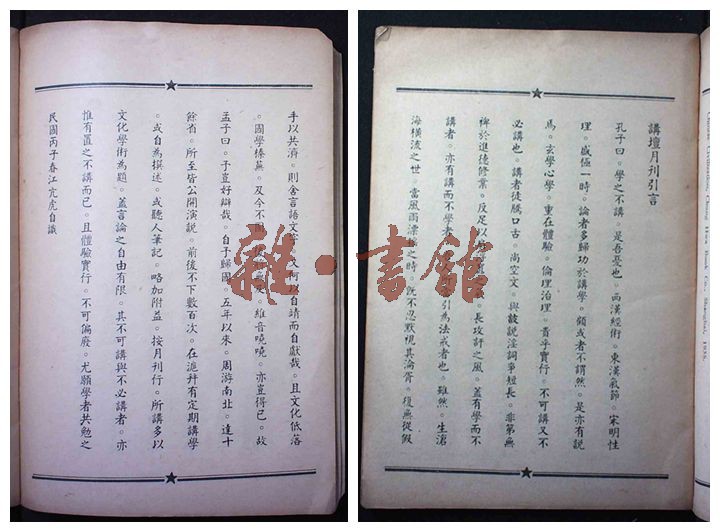 講壇月刊引言
孔子曰。學之不講。是吾憂也。西漢經術。東漢氣節。宋明性
理。盛極一時。論者多歸功於講學。顧或者不謂然。是亦有說
焉。玄學心學。重在體驗。倫理治理。貴乎實行。不可講又不
必講也。講者徒騰口舌。尚空文。與詖說淫詞爭短長。非第無
裨於進德修業。反足以 長攻訐之風。蓋有學而不
講者。亦有講而不學者。 引為法戒者也。雖然。生滄
海橫流之世。當風雨漂搖之時。既不忍默視其淪胥。復無從假
手以共濟。則舍言語文字。 可以自靖而自獻哉。且文化低落
。國學榛蕪。及今不圖。 維音嘵嘵。亦豈得已。故
孟子曰。予豈好辯哉。自予歸國。五年以來。周游南北。達十
餘省。所至皆公開演說。前後不下數百次。在滬幷有定期講學
。或自為撰述。或聽人筆記。略加附益。按月刊行。所講多以
文化學術為題。蓋言論之自由有限。其不可講與不必講者。亦
惟有置之不講而已。且體驗實行。不可偏廢。尤願學者共勉之
民國丙子春江亢虎自識
雜·書館
Chinese Civilization, Chung Hwa Book Co., Shanghai, 1935.